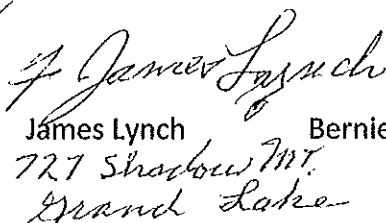 F James Lynch
James Lynch Bernie
727 Shadow Mt.
Grand Lake